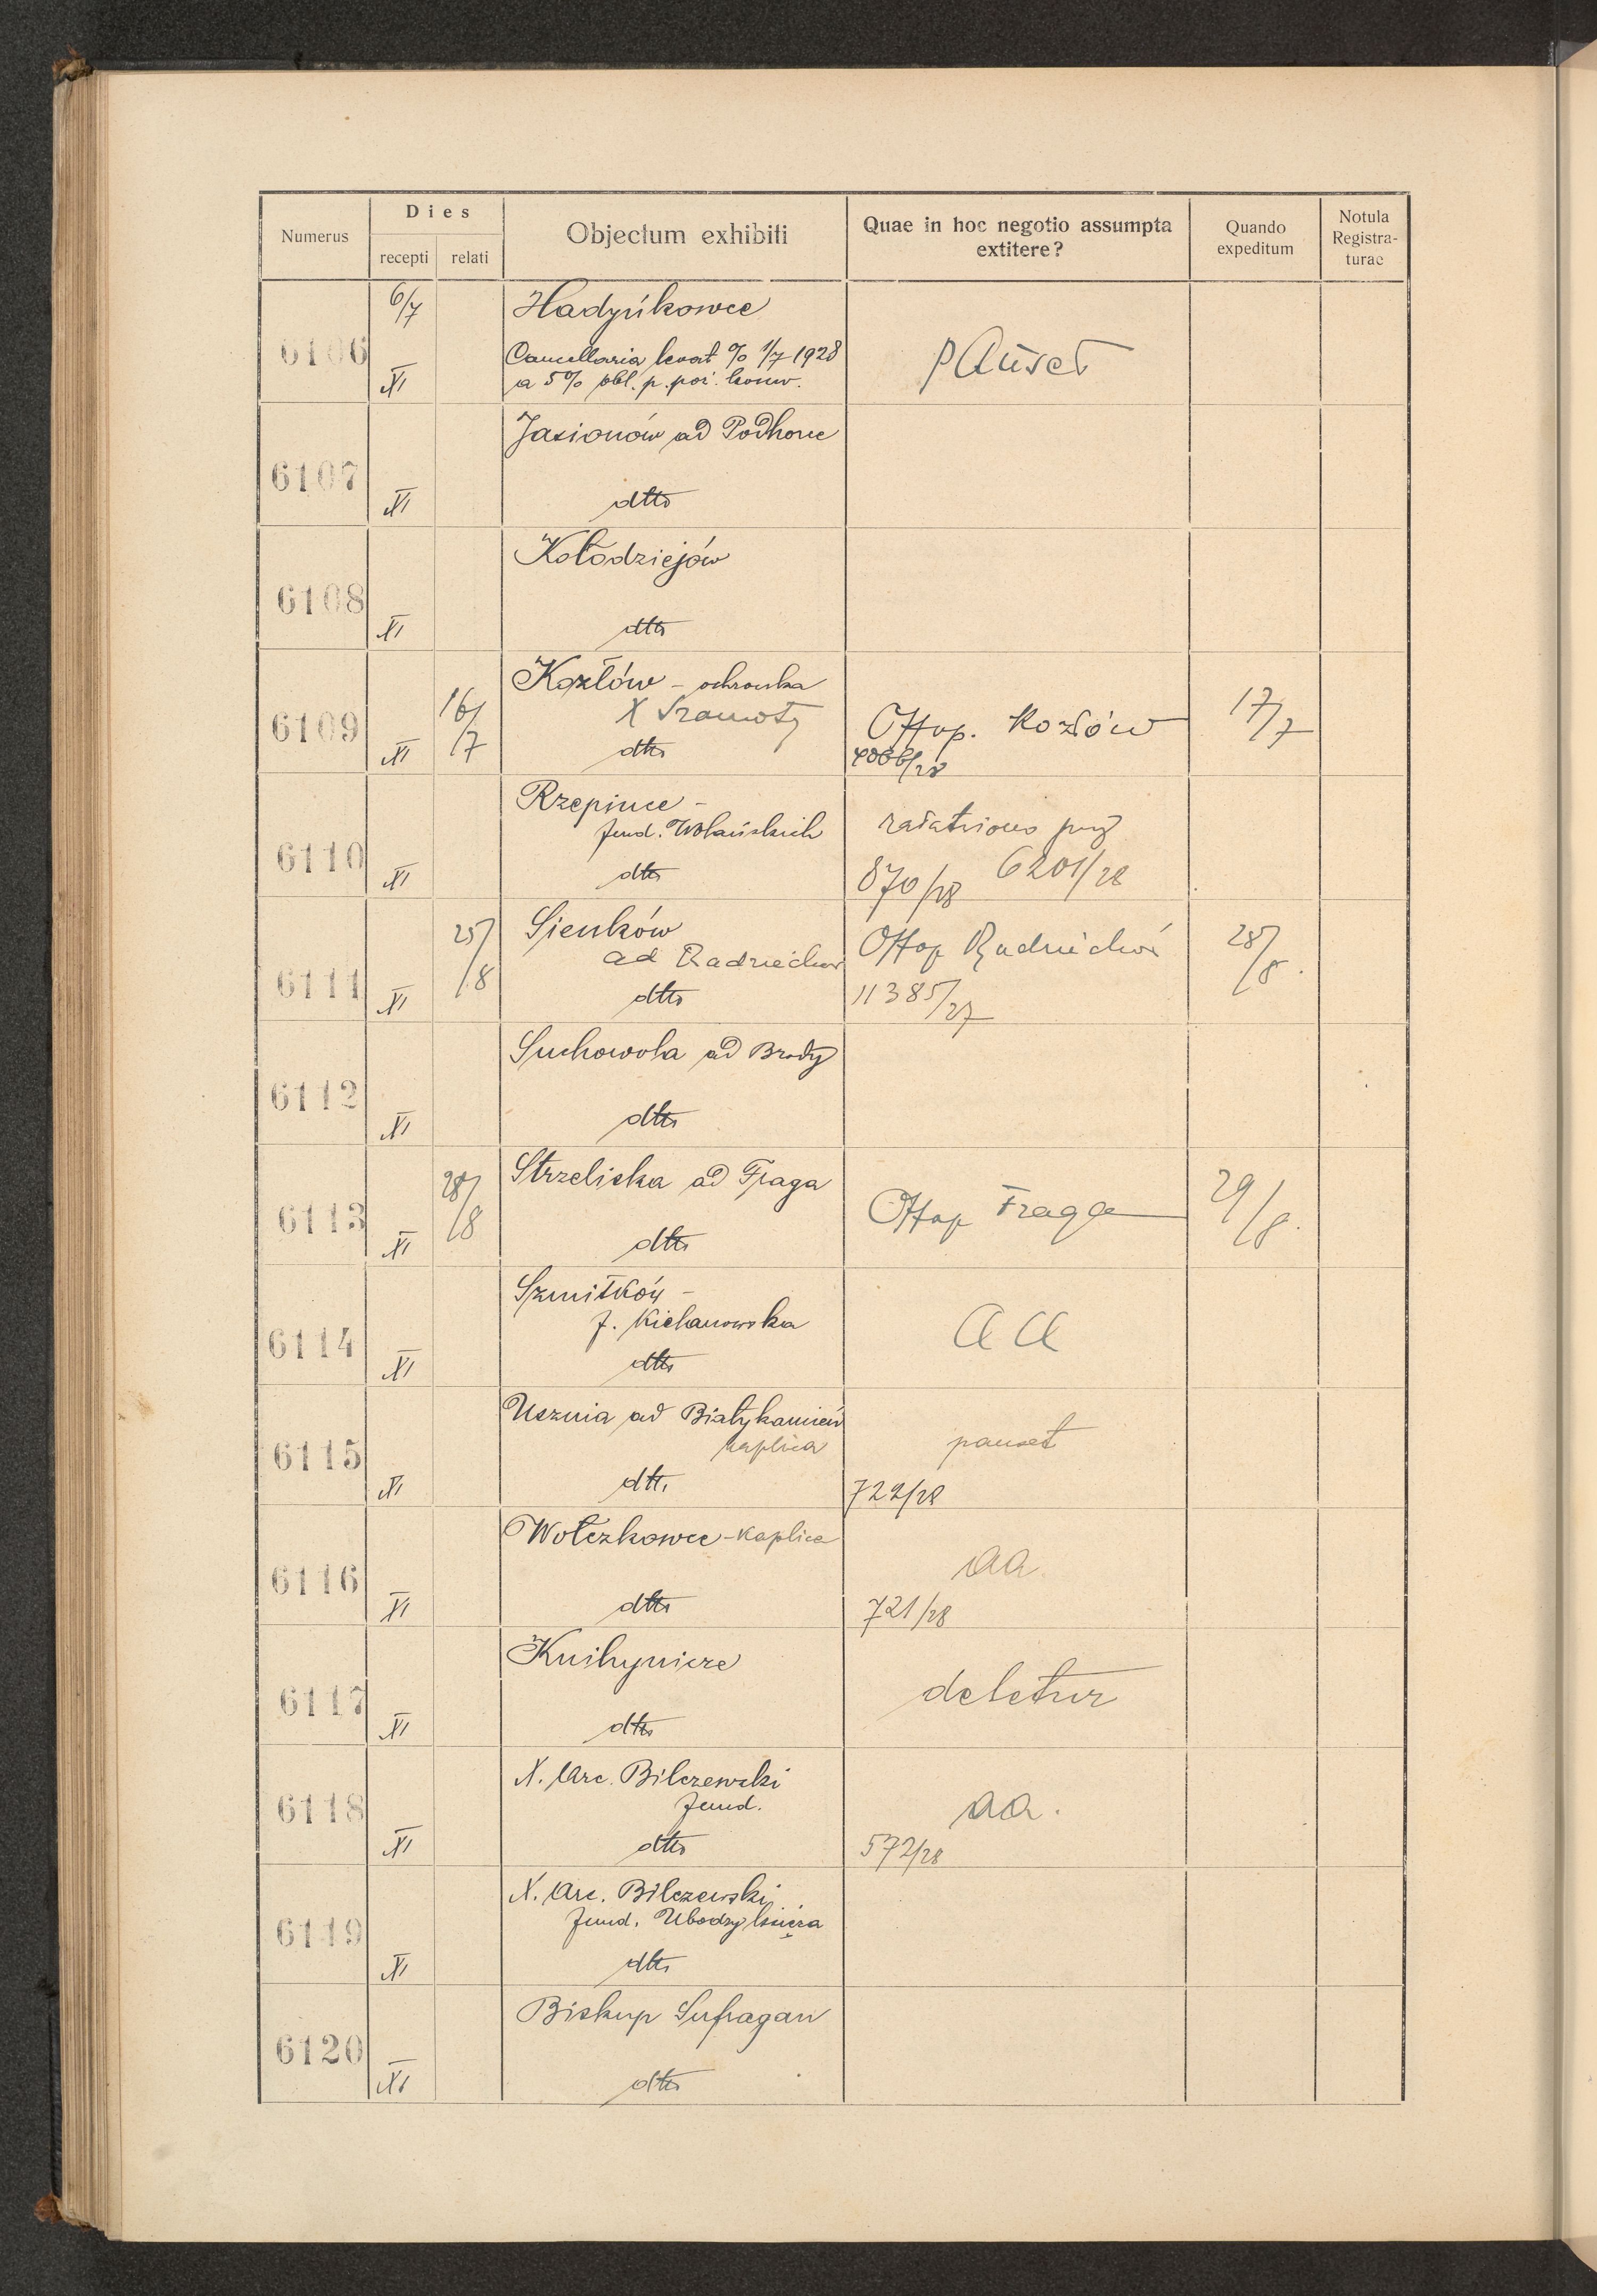 Numerus
Dies
recepti relati
Objectum exhibiti
Quae in hoc negotio assumpta
extitere?
Quando
expeditum
Notula
Registra-
turae
6106 6/7 XI
Hadyńkowce
Cancellaria levat % 1/7 1928
a 5% obl. p. poż. konw.
Pauset
6107 XI
Jasionów ad Podhorce
dtto
6108 XI
Kołodziejów
dtto
6109 XI 16/7
Kozłów - ochronka
X Szamoty
dtto
Offop. Kozłów 17/7
6110 XI
Rzepince -
fund. Wolańskich
dtto
załatwiono przy
870/28 6201/28
6111 XI 25/8
Sienków
ad Radziechów
dtto
Offop Radziechów 28/8.
11385/27
6112 XI
Suchowola ad Brody
dtto
6113 XI 28/8
Strzeliska ad Fraga
dtto
Offop Fraga 29/8.
6114 XI
Szmitków -
f. Kielanowska
dtto
aa
6115 XI
Usznia ad Białykamień
kaplica
dtto
pauset
722/28
6116 XI
Wołczkowce - kaplica
dtto
aa.
721/28
6117 XI
Knihynicze
dtto
deletur
6118 XI
X. Arc. Bilczewski
fund.
dtto
aa.
572/28
6119 XI
X. Arc. Bilczewski
fund. Ubodzy księża
dtto
6120 XI
Biskup Sufragan
dtto